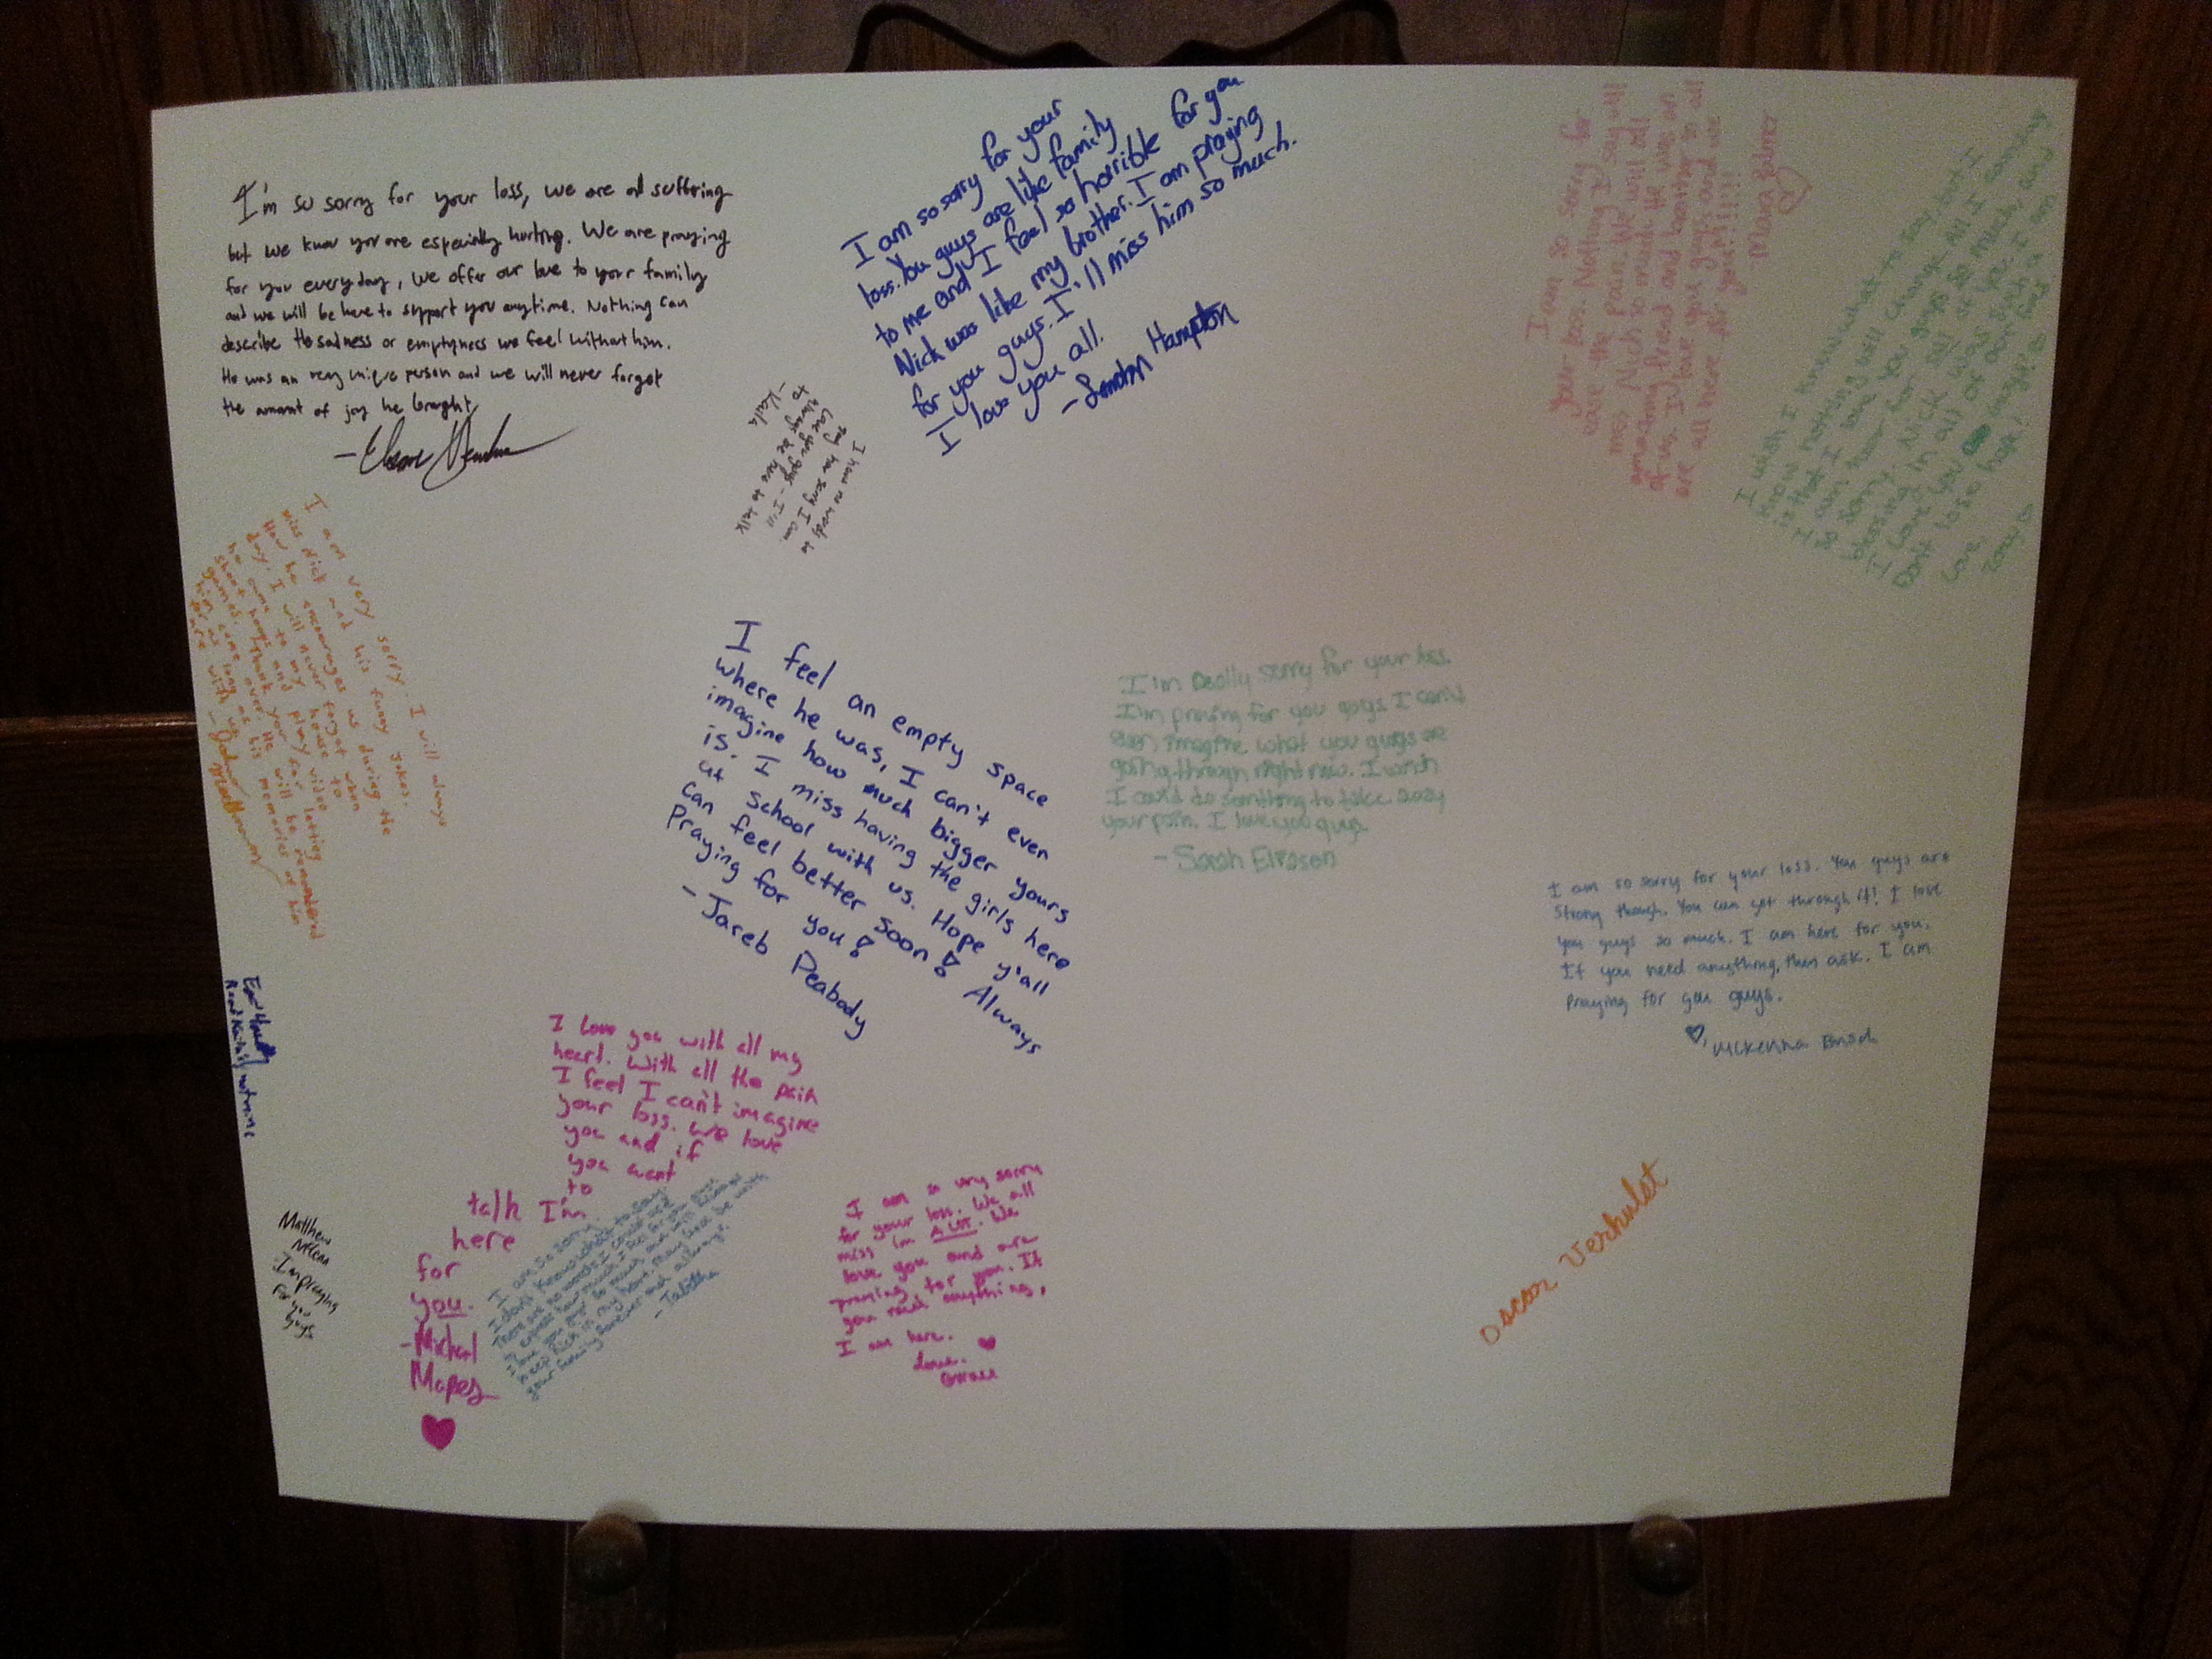 I'm so sorry for your loss, we are all suffering
but we know you are especially hurting. We are praying
for you everyday, we offer our love to your family
and we will be here to support you anytime. Nothing can
describe the sadness or emptyness we feel without him.
He was an very unique person and we will never forget
the amount of joy he brought
I am so sorry for your
loss. You guys are like family
to me and I feel so horrible for you
Nick was like my brother. I am praying
for you guys. I'll miss him so much.
I love you all.
Hampton
I have no words to
say how sorry I am
Love you guys - I'll
always be here to talk
to
- Kaila
I am so sorry for
your loss. Nothing I say will
ease the pain. We will all
miss Nick so much. He was an
amazing friend and brother to all
of us. I love you guys and we
are all here for you!!!!!!
I wish I knew what to say, but I
know nothing will change. All I
is that I love you guys so much, and
so sorry. Nick
Don't lose hope!
Love,
I am very sorry. I will always
miss Nick and his funny jokes.
How he encourages us during the
day. I will never forget when
he came to my house to
shoot hoops and play video
games. Thank you for letting
him come over. He will be remembered
for as long as his memories of him
are with us.
I feel an empty space
where he was, I can't even
imagine how much bigger yours
is. I miss having the girls here
at school with us. Hope y'all
can feel better soon! Always
Praying for you!
- Jareb Peabody
I'm really sorry for your loss.
I'm praying for you guys I can't
even imagine what you guys are
going through right now. I wish
I could do somthing to take away
your pain. I love you guys
- Sarah
I am so sorry for your loss. You guys are
strong though. You can get through it! I love
you guys so much. I am here for you.
If you need anything, then ask. I am
praying for you guys.
Mckenna
I love you with all my
heart. With all the pain
I feel I can't imagine
your loss. We love
you and if
you want
to
talk I'm
here
for
you.
- Michael
Mapes
I am so sorry.
I don't know what to say.
There are no words I could use
to express how much I feel for you.
I love you guys so much and will always
keep Nick in my heart. May God be with
your family forever and always.
- Tabitha
I am so very sorry
for your loss. We all
miss im A LOT. We
love you and are
praying for you. If
you need anything,
I am here.
Love,
Grace
Matthew
I'm praying
for you
guys
Oscar Verhulst